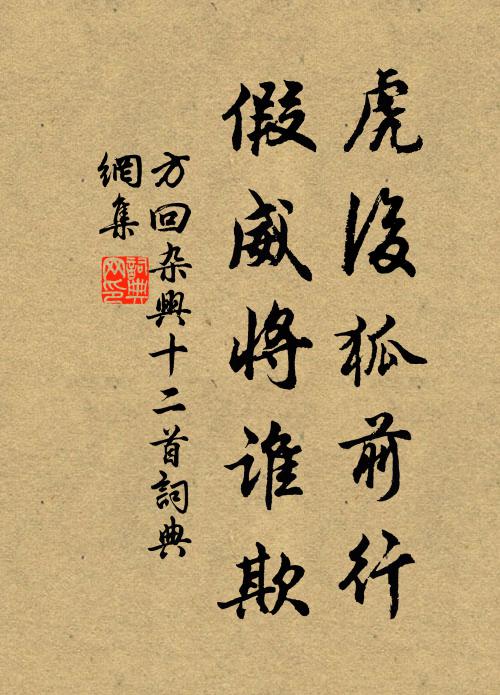 虎後狐前行
假威將誰欺
方回杂興十二首詞典
網集
詞典
网印